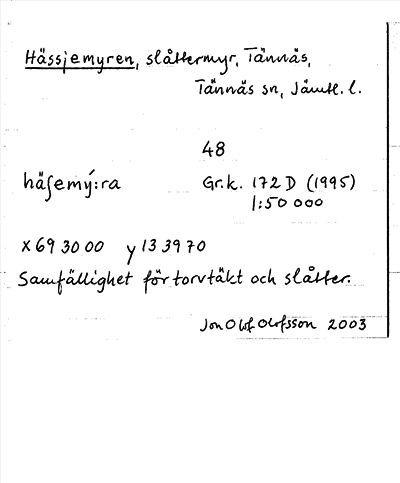 Hässjemyren, slåttermyr, Tännäs,
Tännäs sn, Jämtl. l.
48
häʃemý:ra Gr.k. 172 D (1995)
1:50 000
x 69 30 00 y 13 39 70
Samfällighet för torvtäkt och slåtter.
Jon Olof Olofsson 2003